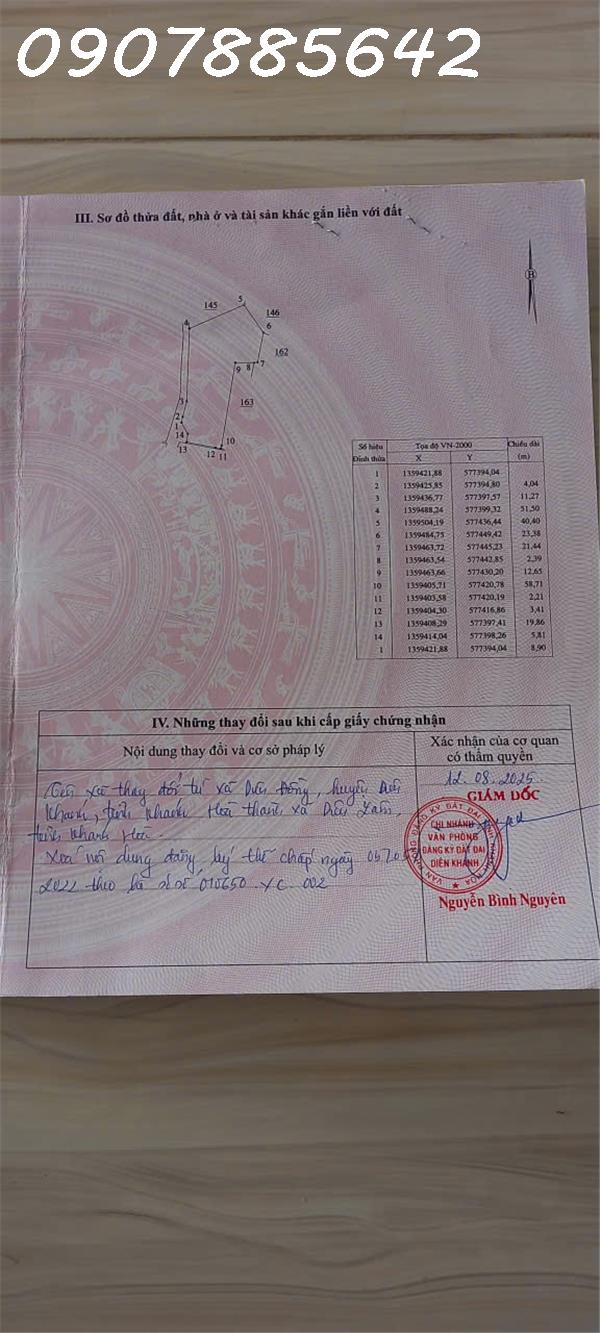 0907885642
III. Sơ đồ thửa đất, nhà ở và tài sản khác gắn liền với đất
B
145
5
146
4
6
162
9 8 7
163
3
2
1
14
10
13
12 11
Số hiệu Đỉnh thửa
Tọa độ VN-2000
Chiều dài (m)
X Y
1 1359421,88 577394,04
2 1359425,85 577394,80 4,04
3 1359436,77 577397,57 11,27
4 1359488,24 577399,32 51,50
5 1359504,19 577436,44 40,40
6 1359484,75 577449,42 23,38
7 1359463,72 577445,23 21,44
8 1359463,54 577442,85 2,39
9 1359463,66 577430,20 12,65
10 1359405,71 577420,78 58,71
11 1359403,58 577420,19 2,21
12 1359404,30 577416,86 3,41
13 1359408,29 577397,41 19,86
14 1359414,04 577398,26 5,81
1 1359421,88 577394,04 8,90
IV. Những thay đổi sau khi cấp giấy chứng nhận
Nội dung thay đổi và cơ sở pháp lý
Xác nhận của cơ quan
có thẩm quyền
Tên xã thay đổi từ xã Diên Đồng, huyện Diên
Khánh, tỉnh Khánh Hoà thành xã Diên Lâm,
tỉnh Khánh Hoà.
Xoá nội dung đăng ký thế chấp ngày
2022 theo hồ sơ số 010650.XC.002
12.08.2025
GIÁM ĐỐC
VĂN PHÒNG ĐĂNG KÝ ĐẤT ĐAI TỈNH KHÁNH HÒA
CHI NHÁNH
VĂN PHÒNG
ĐĂNG KÝ ĐẤT ĐAI
DIÊN KHÁNH
Nguyễn Bình Nguyên